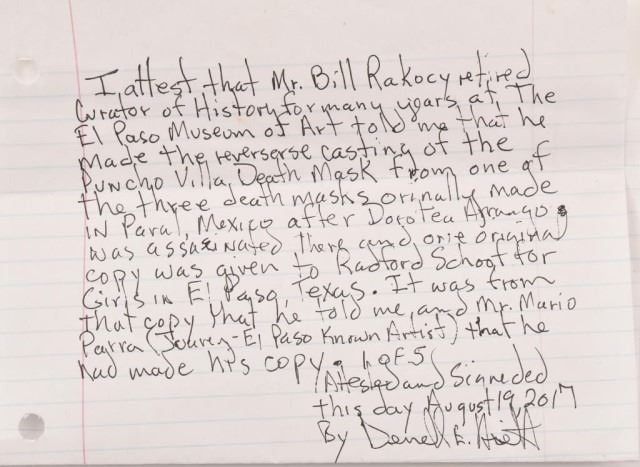 I, attest that Mr. Bill Rakocy retired
Curator of History for many years at The
El Paso Museum of Art told me that he
made the reverserse casting of the
Puncho Villa Death Mask from one of
the three death masks orinally made
in Paral, Mexico after Dorotea Arrango
was assasinated there and one original
copy was given to Radford School for
Girls in El Paso, Texas. It was from
that copy that he told me, and Mr. Mario
Parra (Juarez-El Paso Known Artist) that he
had made his copy. 1 of 5
Atested and Signeded
this day August 19, 2017
By E.